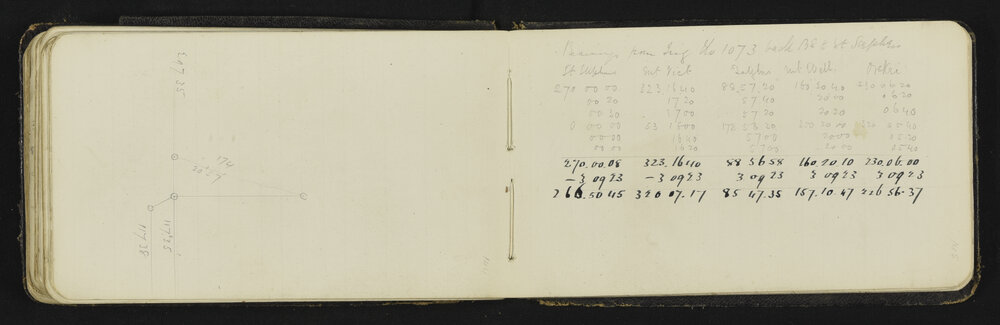 170
20°57'
117°25'
117°38
Bearings from Trig Stn 1073 back BS = St Stephens
St Stephens Mt Vict Sulphur Mt Will.
270 00 00 323.16 40 88.57.20 160 20 40 230 06 20
00 20 17 20 57 40 20 00 06 20
00 20 17 00 57 20 20 20 06 40
0 00 00 53 16 00 178 58 20 05 40
00 20 16 40 57 00 20 00 05 20
00 00 16 20 57 00 20 00 05 40
270.00.08 323.16 40 88 56 58 160.20 10 230.06.00
-3 09 23 -3 09 23 3 09 23 3 09 23 3 09 23
266.50 45 320 07.17 85 47.35 157.10.47 226 56.37